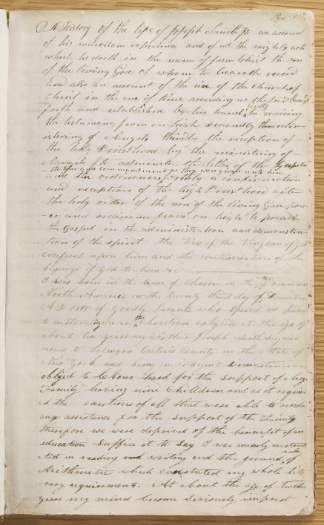 A History of the life of Joseph Smith Jr. an account
of his marvilous experience and of all the mighty acts
which he doeth in the name of Jesus Christ the son
of the living God of whom he beareth record
and also an account of the rise of the church of
Christ in the eve of time according as the Lord brought
forth and established by his hand he receiving
the testamony from on high secondly the minis
tering of Angels thirdly the reception of
the holy Priesthood by the ministring of
Aangels to adminster the letter of the Gospel
and the ordinencs forthly a confirmation
and reception of the high Priesthood after
the holy order of the son of the living God pow
er and ordinence from on high to preach
the Gospel in the administration and demonstra
tion of the spirit the Kees of the Kingdom of God
confered upon him and the continuation of the
blessings of God to him &c
I was born in the town of Charon in the State of
North America on the twenty third day of
AD 1805 of goodly Parents who spared no pains
to instructing me in the christian religion at the age of
about ten years my Father Joseph Smith Seignior
moved to Palmyra Ontario County in the State of
New York and being in indigent circumstances were
obliged to labour hard for the support of a large
Family having nine children and as it requir
ed the exertions of all that were able to render
any assistance for the support of the Family
therefore we were deprived of the bennifit of an
education suffice it to say I was mearly instruct
tid in reading and writing and the ground rules
of Arithmatic which constuted my whole lite
rary acquirements. At about the age of twelve
years my mind become seriously imprest